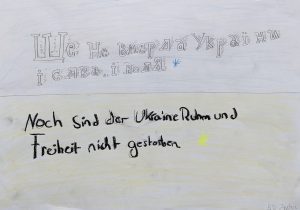 Ще не вмерла України
і слава, і воля
Noch sind der Ukraine Ruhm und
Freiheit nicht gestorben